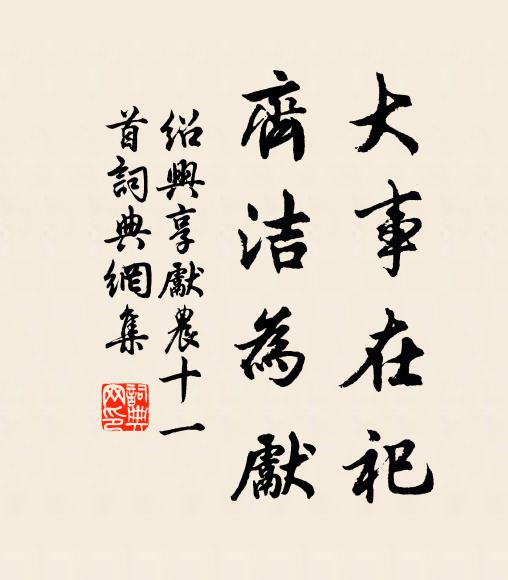 大事在祀
齊洁為獻
绍興享獻農十一
首詞典網集
詞典
网印